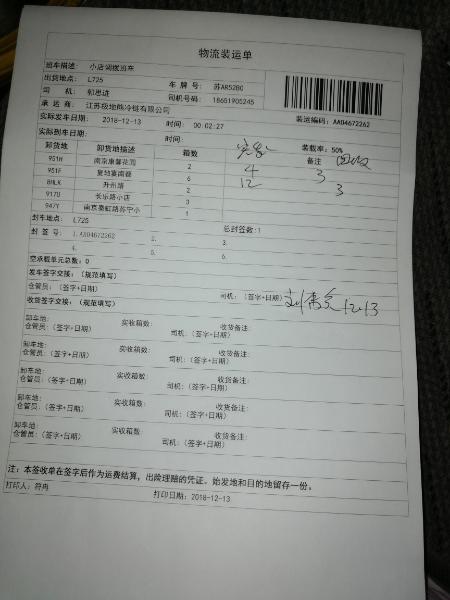 物流装运单
班车描述: 小店调拨班车
出货地点: L725 车 牌 号: 苏AR5280
司 机: 郭思进 司机号码: 18651905245
承 运 商: 江苏极地熊冷链有限公司
装运编码: AA04672262
实际发车日期: 2018-12-13 时间: 00:02:27
实际到车日期: 时间: 装载率: 50%
卸货地 卸货地描述 箱数 实发 备注 回收
951H 南京康馨花园 2 4 3
951F 复地宴南都 6 12 3
8HLK 升州路 2
917U 长乐路小店 3
947Y 南京秦虹路苏宁小 1
封车地点: L725 总封签数:1
封 签 号: 1.AA04672262 2. 3.
4. 5. 6.
空承载单元总数: 0
发车签字交接: (规范填写)
仓管员: (签字+日期) 司机: (签字+日期) 12.13
收货签字交接: (规范填写)
卸车地: 实收箱数: 收货备注:
仓管员: (签字+日期) 司机: (签字+日期)
卸车地: 实收箱数: 收货备注:
仓管员: (签字+日期) 司机: (签字+日期)
卸车地: 实收箱数: 收货备注:
仓管员: (签字+日期) 司机: (签字+日期)
卸车地: 实收箱数: 收货备注:
仓管员: (签字+日期) 司机: (签字+日期)
卸车地: 实收箱数: 收货备注:
仓管员: (签字+日期) 司机: (签字+日期)
注: 本签收单在签字后作为运费结算, 出险理赔的凭证。始发地和目的地留存一份。
打印人: 符冉 打印日期: 2018-12-13